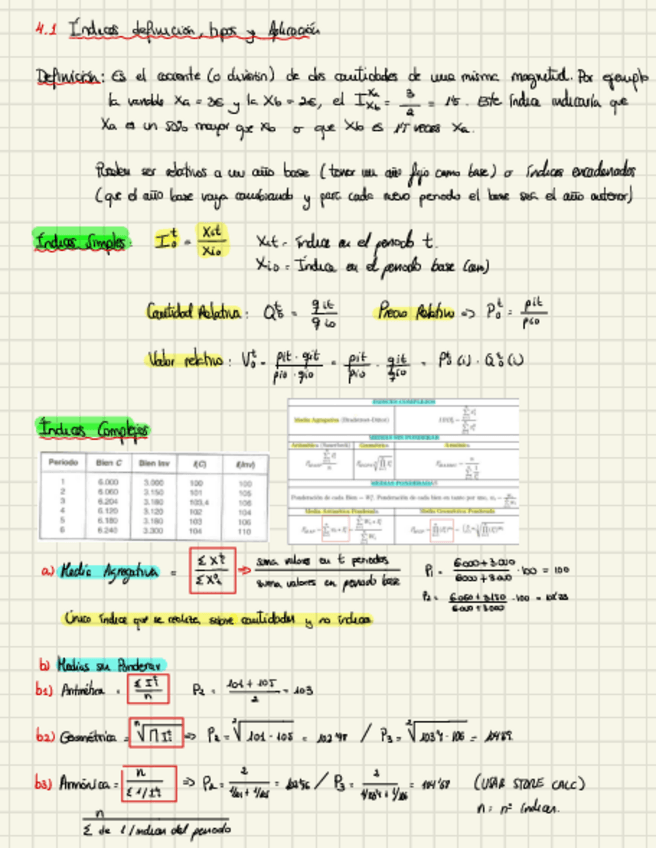 4.1 Índices definición, tipos y Aplicación
Definición: Es el cociente (o división) de dos cantidades de una misma magnitud. Por ejemplo
la variable Xa = 3€ y la Xb = 2€, el I Xa Xb = 3/2 = 1'5. Este índice indicaría que
Xa es un 50% mayor que Xb o que Xb es 1'5 veces Xa.
Pueden ser relativos a un año base (tener un año fijo como base) o índices encadenados
(que el año base vaya cambiando y para cada nuevo periodo el base sea el año anterior)
Índices Simples: I₀ᵗ = Xit / Xio Xit - índice en el periodo t.
Xio = Índice en el periodo base (cero)
Cantidad Relativa: Q₀ᵗ = qit / qio Precio Relativo => P₀ᵗ = pit / pio
Valor relativo: V₀ᵗ = pit · qit / pio · qio = pit / pio · qit / qio = P₀ᵗ (i) · Q₀ᵗ (i)
Índices Complejos
ÍNDICES COMPLEJOS
Media Agregativa
MEDIAS SIN PONDERAR
Aritmética (Sauerbeck) Geométrica Armónica
MEDIAS PONDERADAS
Media Aritmética Ponderada Media Geométrica Ponderada
Periodo Bien C Bien Inv I(C) I(Inv)
1 6.000 3.000 100 100
2 6.060 3.150 101 105
3 6.204 3.180 103,4 106
4 6.120 3.120 102 104
5 6.180 3.180 103 106
6 6.240 3.300 104 110
a) Media Agregativa = Σ Xᵗ / Σ X⁰ => suma valores en t periodos / suma valores en periodo base P₁ = 6000 + 3.000 / 6000 + 3.000 · 100 = 100
P₂ = 6.060 + 3.150 / 6.000 + 3.000 · 100 =
Único índice que se realiza sobre cantidades y no índices
b) Medias sin Ponderar
b1) Aritmética = Σ Iᵗ / n P₂ = 101 + 105 / 2 = 103
b2) Geométrica = ⁿ√Π Iᵗ => P₂ = ²√101 · 105 = 102'98 / P₃ = ²√103'4 · 106 = 104'69
b3) Armónica = n / Σ 1/Iᵗ => P₂ = 2 / 1/101 + 1/105 = 102'96 / P₃ = 2 / 1/103'4 + 1/106 = 104'68 (USAR STORE CALC)
n = nº índices.
n / Σ de 1/índices del periodo